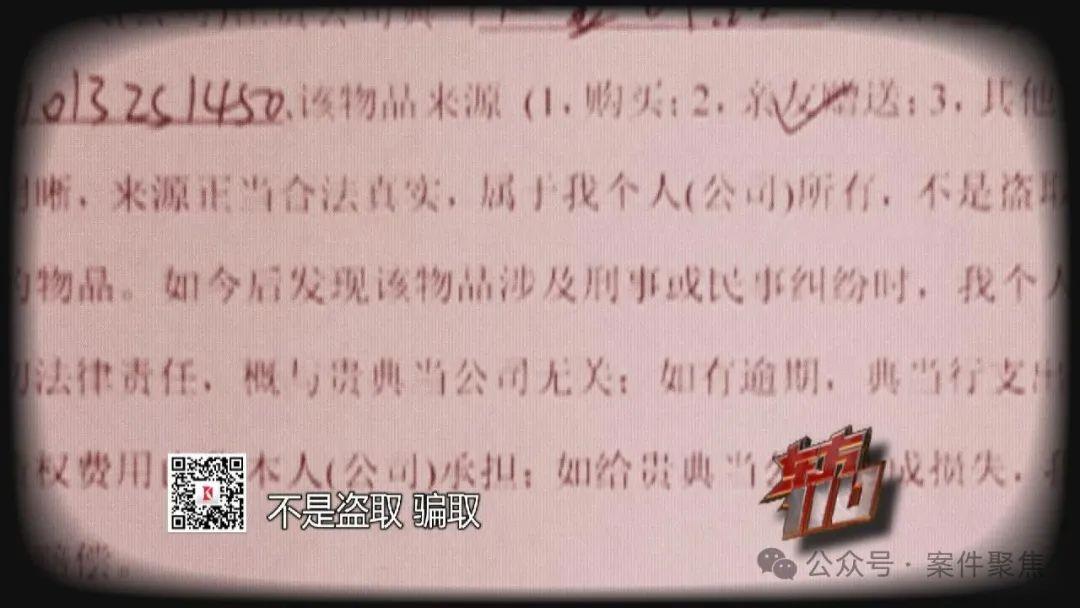 013251450.该物品来源(1.购买;2.亲友赠送;3.其他
晰,来源正当合法真实,属于我个人(公司)所有,不是盗取
的物品。如今后发现该物品涉及刑事或民事纠纷时,我个人
法律责任,概与贵典当公司无关;如有逾期,典当行支出
权费用 本人(公司)承担;如给贵典当 成损失,我
赔偿。
不是盗取 骗取
东方110
公众号·案件聚焦